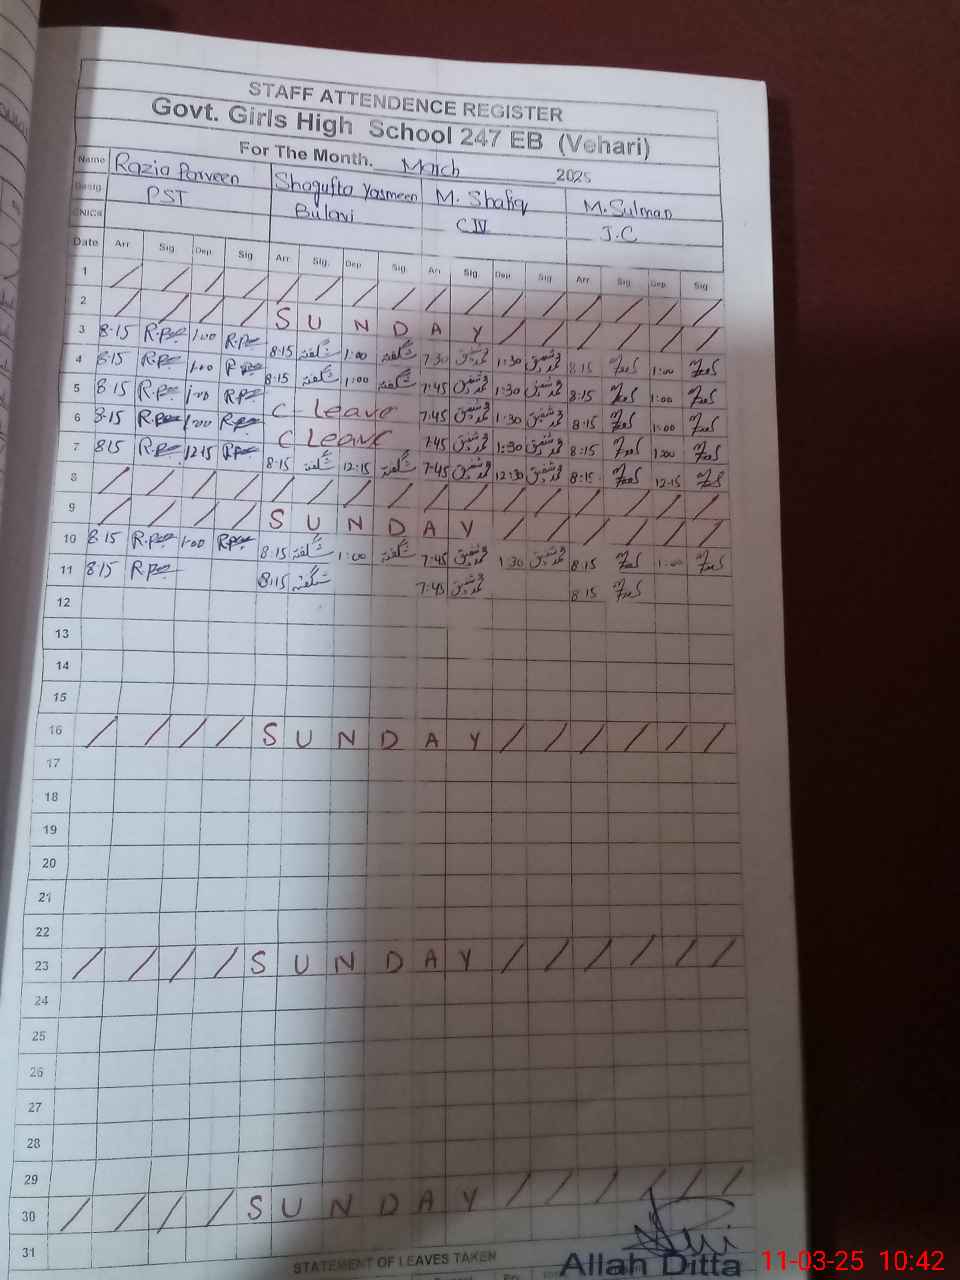 STAFF ATTENDENCE REGISTER
Govt. Girls High School 247 EB (Vehari)
For The Month. March 2025
Name Razia Parveen Shagufta Yasmeen M. Shafiq M. Sulman
Desig. PST Bulavi C IV J.C
CNIC#
Date Arr. Sig. Dep. Sig. Arr. Sig. Dep. Sig. Arr. Sig. Dep. Sig. Arr. Sig. Dep. Sig.
1 / / / / / / / / / / / / / / / /
2 / / / / S U N D A Y / / / / / /
3 8·15 1·00 8·15 شگفتہ 1:00 شگفتہ 7:30 محمد شفیق 1:30 محمد شفیق 8:15 1:00
4 8·15 1·00 8·15 شگفتہ 1:00 شگفتہ 7:45 محمد شفیق 1:30 محمد شفیق 8:15 1:00
5 8·15 1·00 C- Leave 7:45 محمد شفیق 1:30 محمد شفیق 8:15 1:00
6 8·15 1:00 C Leave 7:45 محمد شفیق 1:30 محمد شفیق 8:15 1:00
7 8·15 12·15 8·15 شگفتہ 12:15 شگفتہ 7:45 محمد شفیق 12:30 محمد شفیق 8:15 12·15
8 / / / / / / / / / / / / / / / /
9 / / / / S U N D A Y / / / / / /
10 8·15 1·00 8:15 شگفتہ 1:00 شگفتہ 7:45 محمد شفیق 1:30 محمد شفیق 8:15 1:00
11 8·15 8:15 شگفتہ 7:45 محمد شفیق 8:15
12
13
14
15
16 / / / / S U N D A Y / / / / / /
17
18
19
20
21
22
23 / / / / S U N D A Y / / / / / /
24
25
26
27
28
29
30 / / / / S U N D A Y / / / / / /
31
STATEMENT OF LEAVES TAKEN
Allah Ditta
11-03-25 10:42